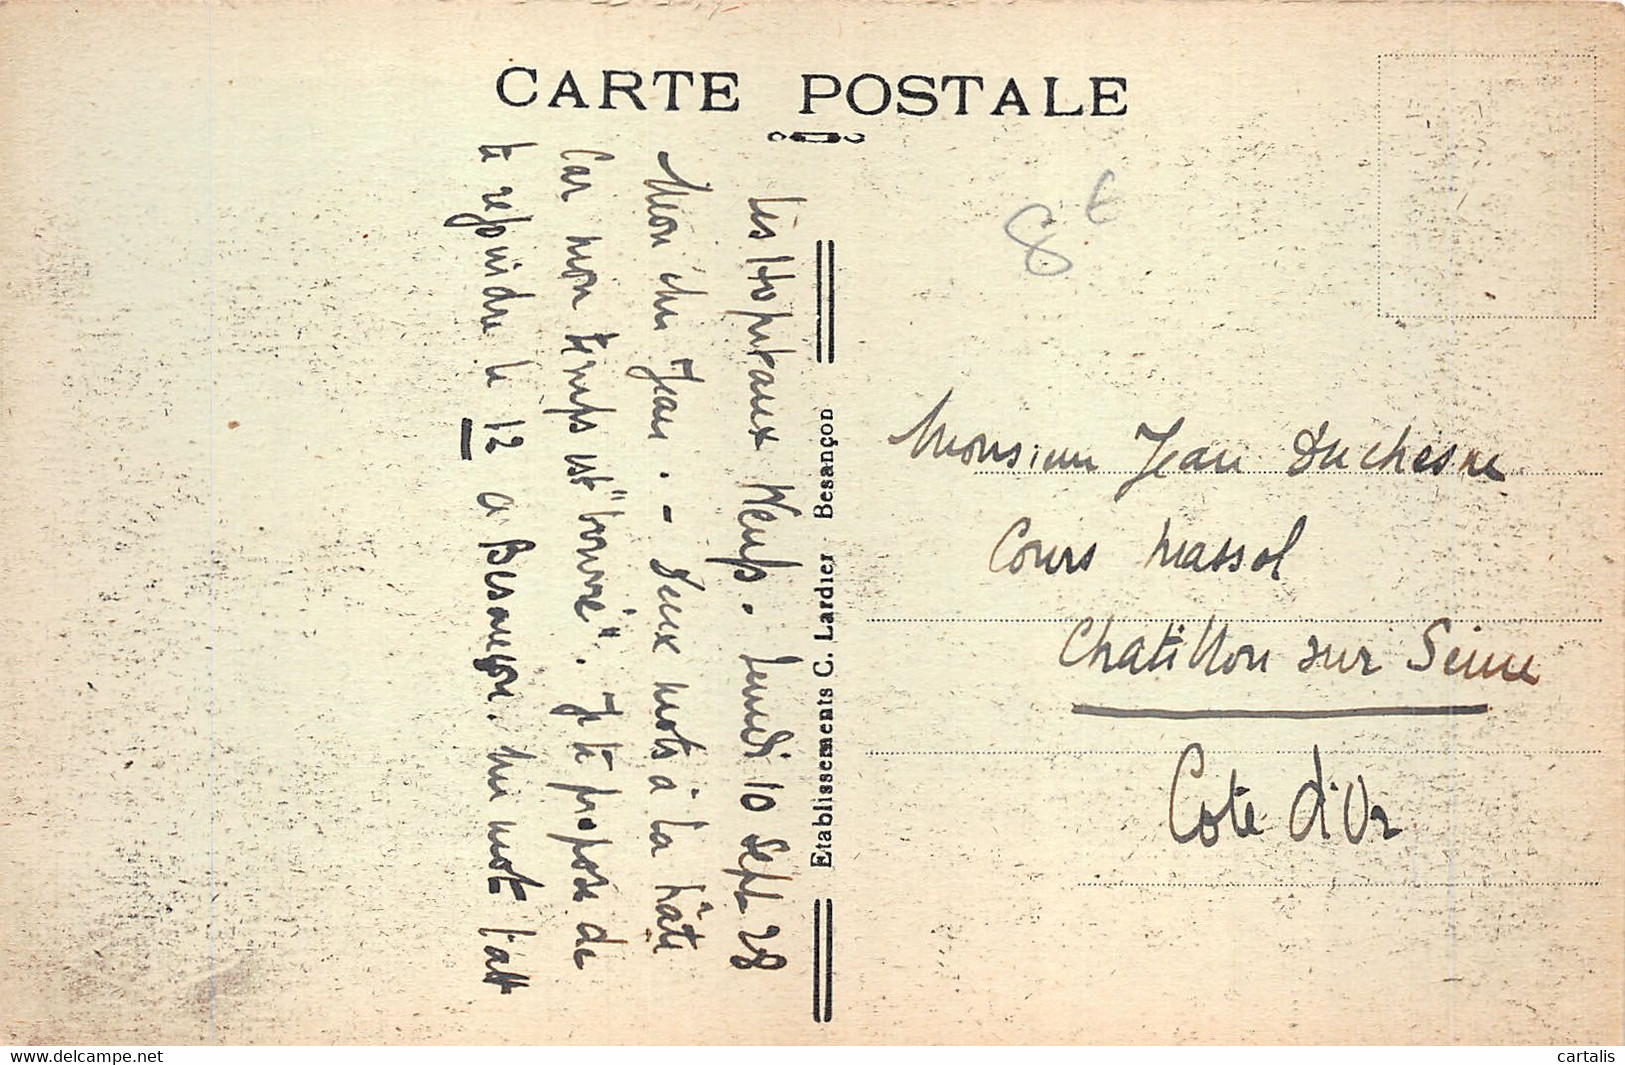 CARTE POSTALE
8€
Les Hopitaux Neufs. Lundi 10 Sept 28
Mon cher Jean. - Deux mots à la hâte
Car mon temps est "borné". Je te propose de
te rejoindre le 12 à Besançon. Un mot l'att
Etablissements C. Lardier - Besançon
Monsieur Jean Duchesne
Cours Massol
Chatillon sur Seine
Cote d'Or
www.delcampe.net
cartalis